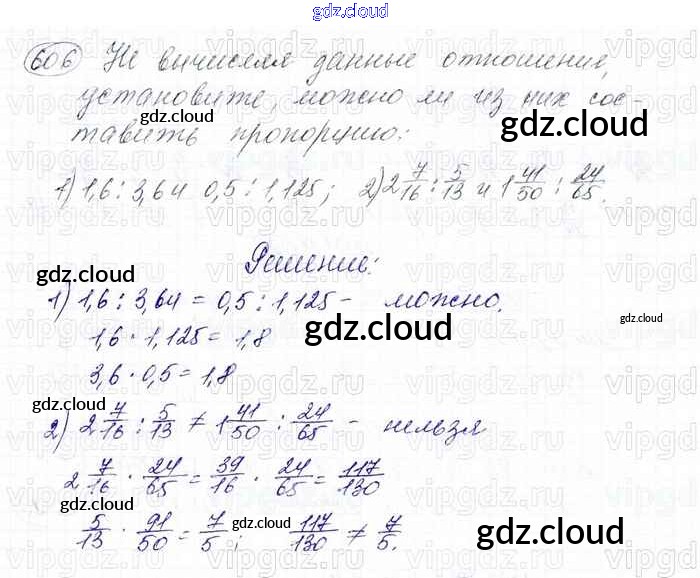 gdz.cloud
606 Не вычисляя данные отношения,
установите, можно ли из них сос-
тавить пропорцию:
gdz.cloud
gdz.cloud
1) 1,6 : 3,64 0,5 : 1,125; 2) 2 7/16 : 5/13 и 1 41/50 : 24/65.
gdz.cloud
gdz.cloud
Решение:
gdz.cloud
gdz.cloud
1) 1,6 : 3,64 = 0,5 : 1,125 - можно.
gdz.cloud
gdz.cloud
1,6 · 1,125 = 1,8
3,6 · 0,5 = 1,8
gdz.cloud
2) 2 7/16 : 5/13 ≠ 1 41/50 : 24/65 - нельзя
2 7/16 · 24/65 = 39/16 · 24/65 = 117/130
gdz.cloud
gdz.cloud
5/13 · 91/50 = 7/5; 117/130 ≠ 7/5.
gdz.cloud
gdz.cloud